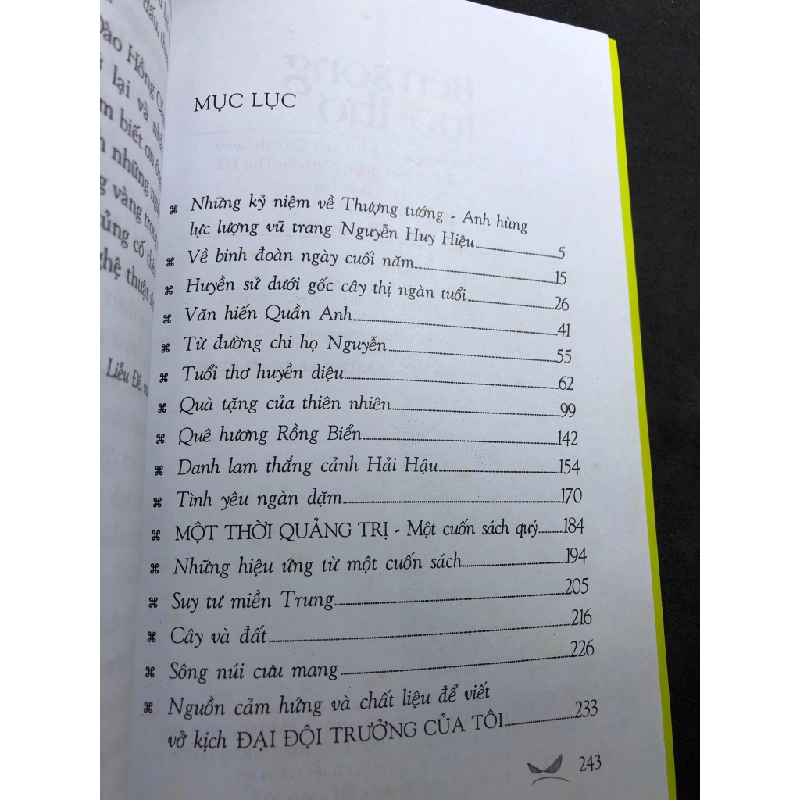 Đào Hồng
lại và
biết ơn
những
vàng trong
củng cố
nghệ thuật
Liễu Đề,
MỤC LỤC
⌘ Những kỷ niệm về Thượng tướng - Anh hùng
lực lượng vũ trang Nguyễn Huy Hiệu 5
⌘ Về binh đoàn ngày cuối năm 15
⌘ Huyền sử dưới gốc cây thị ngàn tuổi 26
⌘ Văn hiến Quần Anh 41
⌘ Từ đường chi họ Nguyễn 55
⌘ Tuổi thơ huyền diệu 62
⌘ Quà tặng của thiên nhiên 99
⌘ Quê hương Rồng Biển 142
⌘ Danh lam thắng cảnh Hải Hậu 154
⌘ Tình yêu ngàn dặm 170
⌘ MỘT THỜI QUẢNG TRỊ - Một cuốn sách quý 184
⌘ Những hiệu ứng từ một cuốn sách 194
⌘ Suy tư miền Trung 205
⌘ Cây và đất 216
⌘ Sông núi cưu mang 226
⌘ Nguồn cảm hứng và chất liệu để viết
vở kịch ĐẠI ĐỘI TRƯỞNG CỦA TÔI 233
243